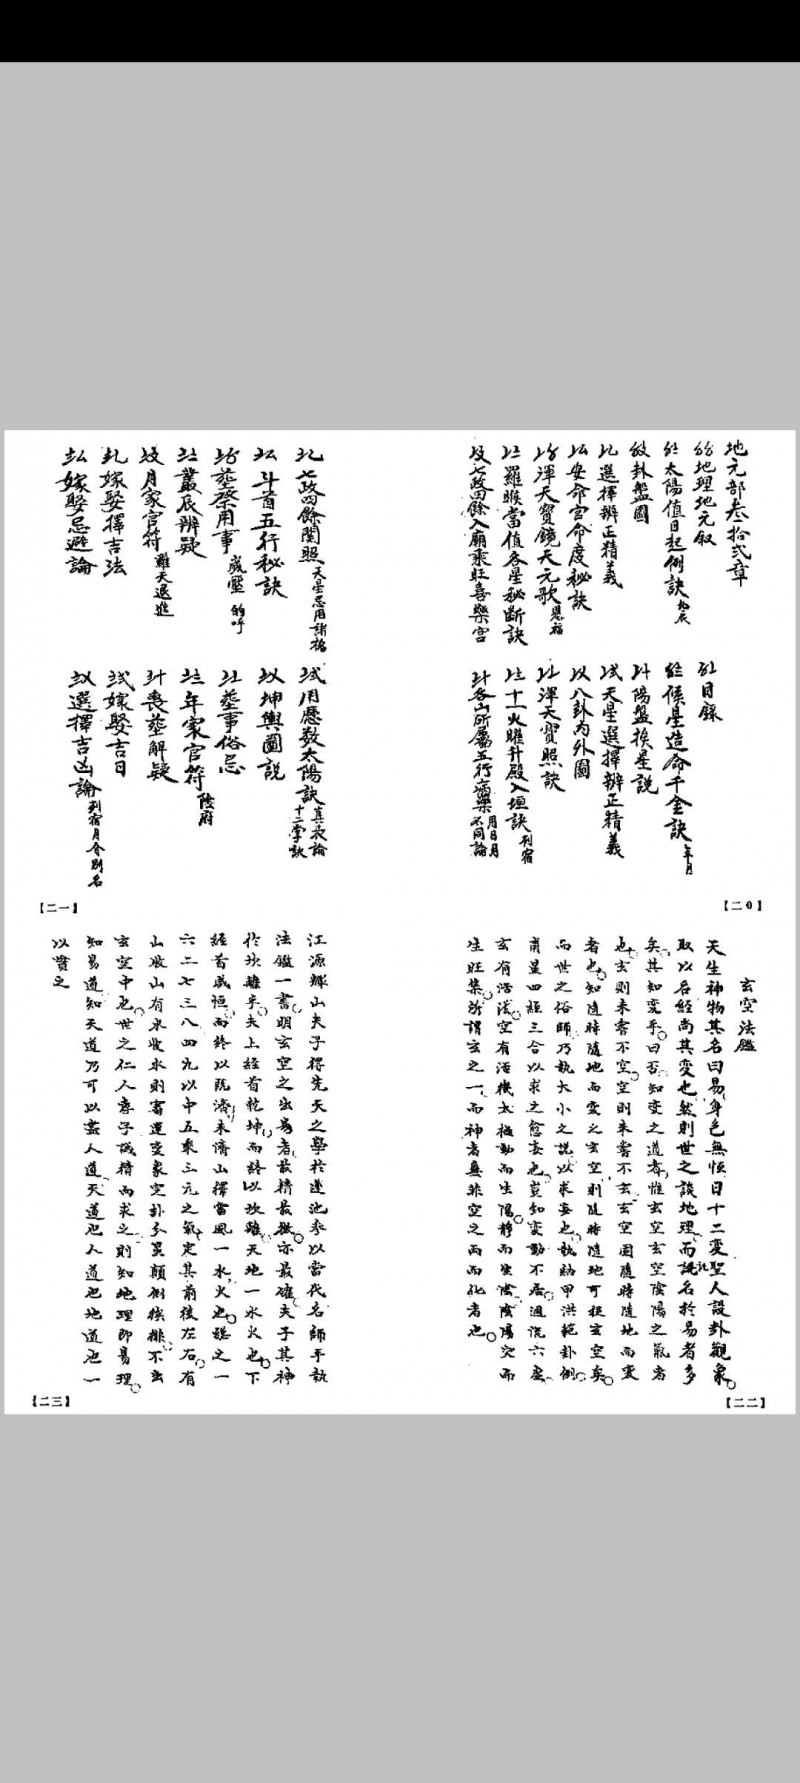 地元部叁拾弍章
地理地元叙
太陽值日起例訣
卦盤圖
選擇辨正精義
安命宮命度秘訣
渾天寶鏡天元歌
羅睺當值各星秘斷訣
七政四餘入廟乘旺喜樂宮
目錄
候星造命千金訣 年月
陽盤挨星說
天星選擇辨正精義
八卦內外圖
渾天寶照訣
十一火曜升殿入垣訣 列宿
各山所屬五行 用日月不同論
【二0】
七政四餘 照 天星忌用諸格
斗首五行秘訣
葬祭用事 歲壓 的呼
叢辰辨疑
月家官符 羅天退進
嫁娶擇吉法
嫁娶忌避論
用曆数太陽訣 真表論 十二字訣
坤輿圖說
葬事俗忌
年家官符 陰府
喪葬解疑
嫁娶吉日
選擇吉凶論 列宿月令別名
【二一】
玄空法鑑
天生神物其名曰易身色無恒日十二變聖人設卦觀象
取以名經尚其變也然則世之談地理而託名於易者多
矣其知變乎曰否知變之道者惟玄空玄空陰陽之氣者
也玄則未嘗不空空則未嘗不玄玄空固隨時隨地而變
者也知隨時隨地而變之玄空則隨時隨地可挨玄空矣
而世之俗師乃執大小之說以求妄也執納甲洪範卦例
星四經三合以求之愈妄也豈知變動不居週流六虛
玄有活法空有活機太極動而生陽靜而生陰陰陽交而
生旺集所謂玄之一而神者無非空之兩而化者也
【二二】
江源輝山夫子得先天之學於蓮池參以當代名師手執
法鑑一書明玄空之出易者最精最微亦最確夫子其神
於坎離乎夫上經首乾坤而終以坎離天地一水火也下
經首咸恒而終以既濟未濟山澤雷風一水火也謎之一
六二七三八四九以中五乘三元之氣定其前後左右有
山收山有水收水則審運變象定卦分星顛倒挨排不出
玄空中也世之仁人孝子誠精而求之則知地理即易理
知易道知天道乃可以盡人道天道也人道也地道也一
以貫之
【二三】